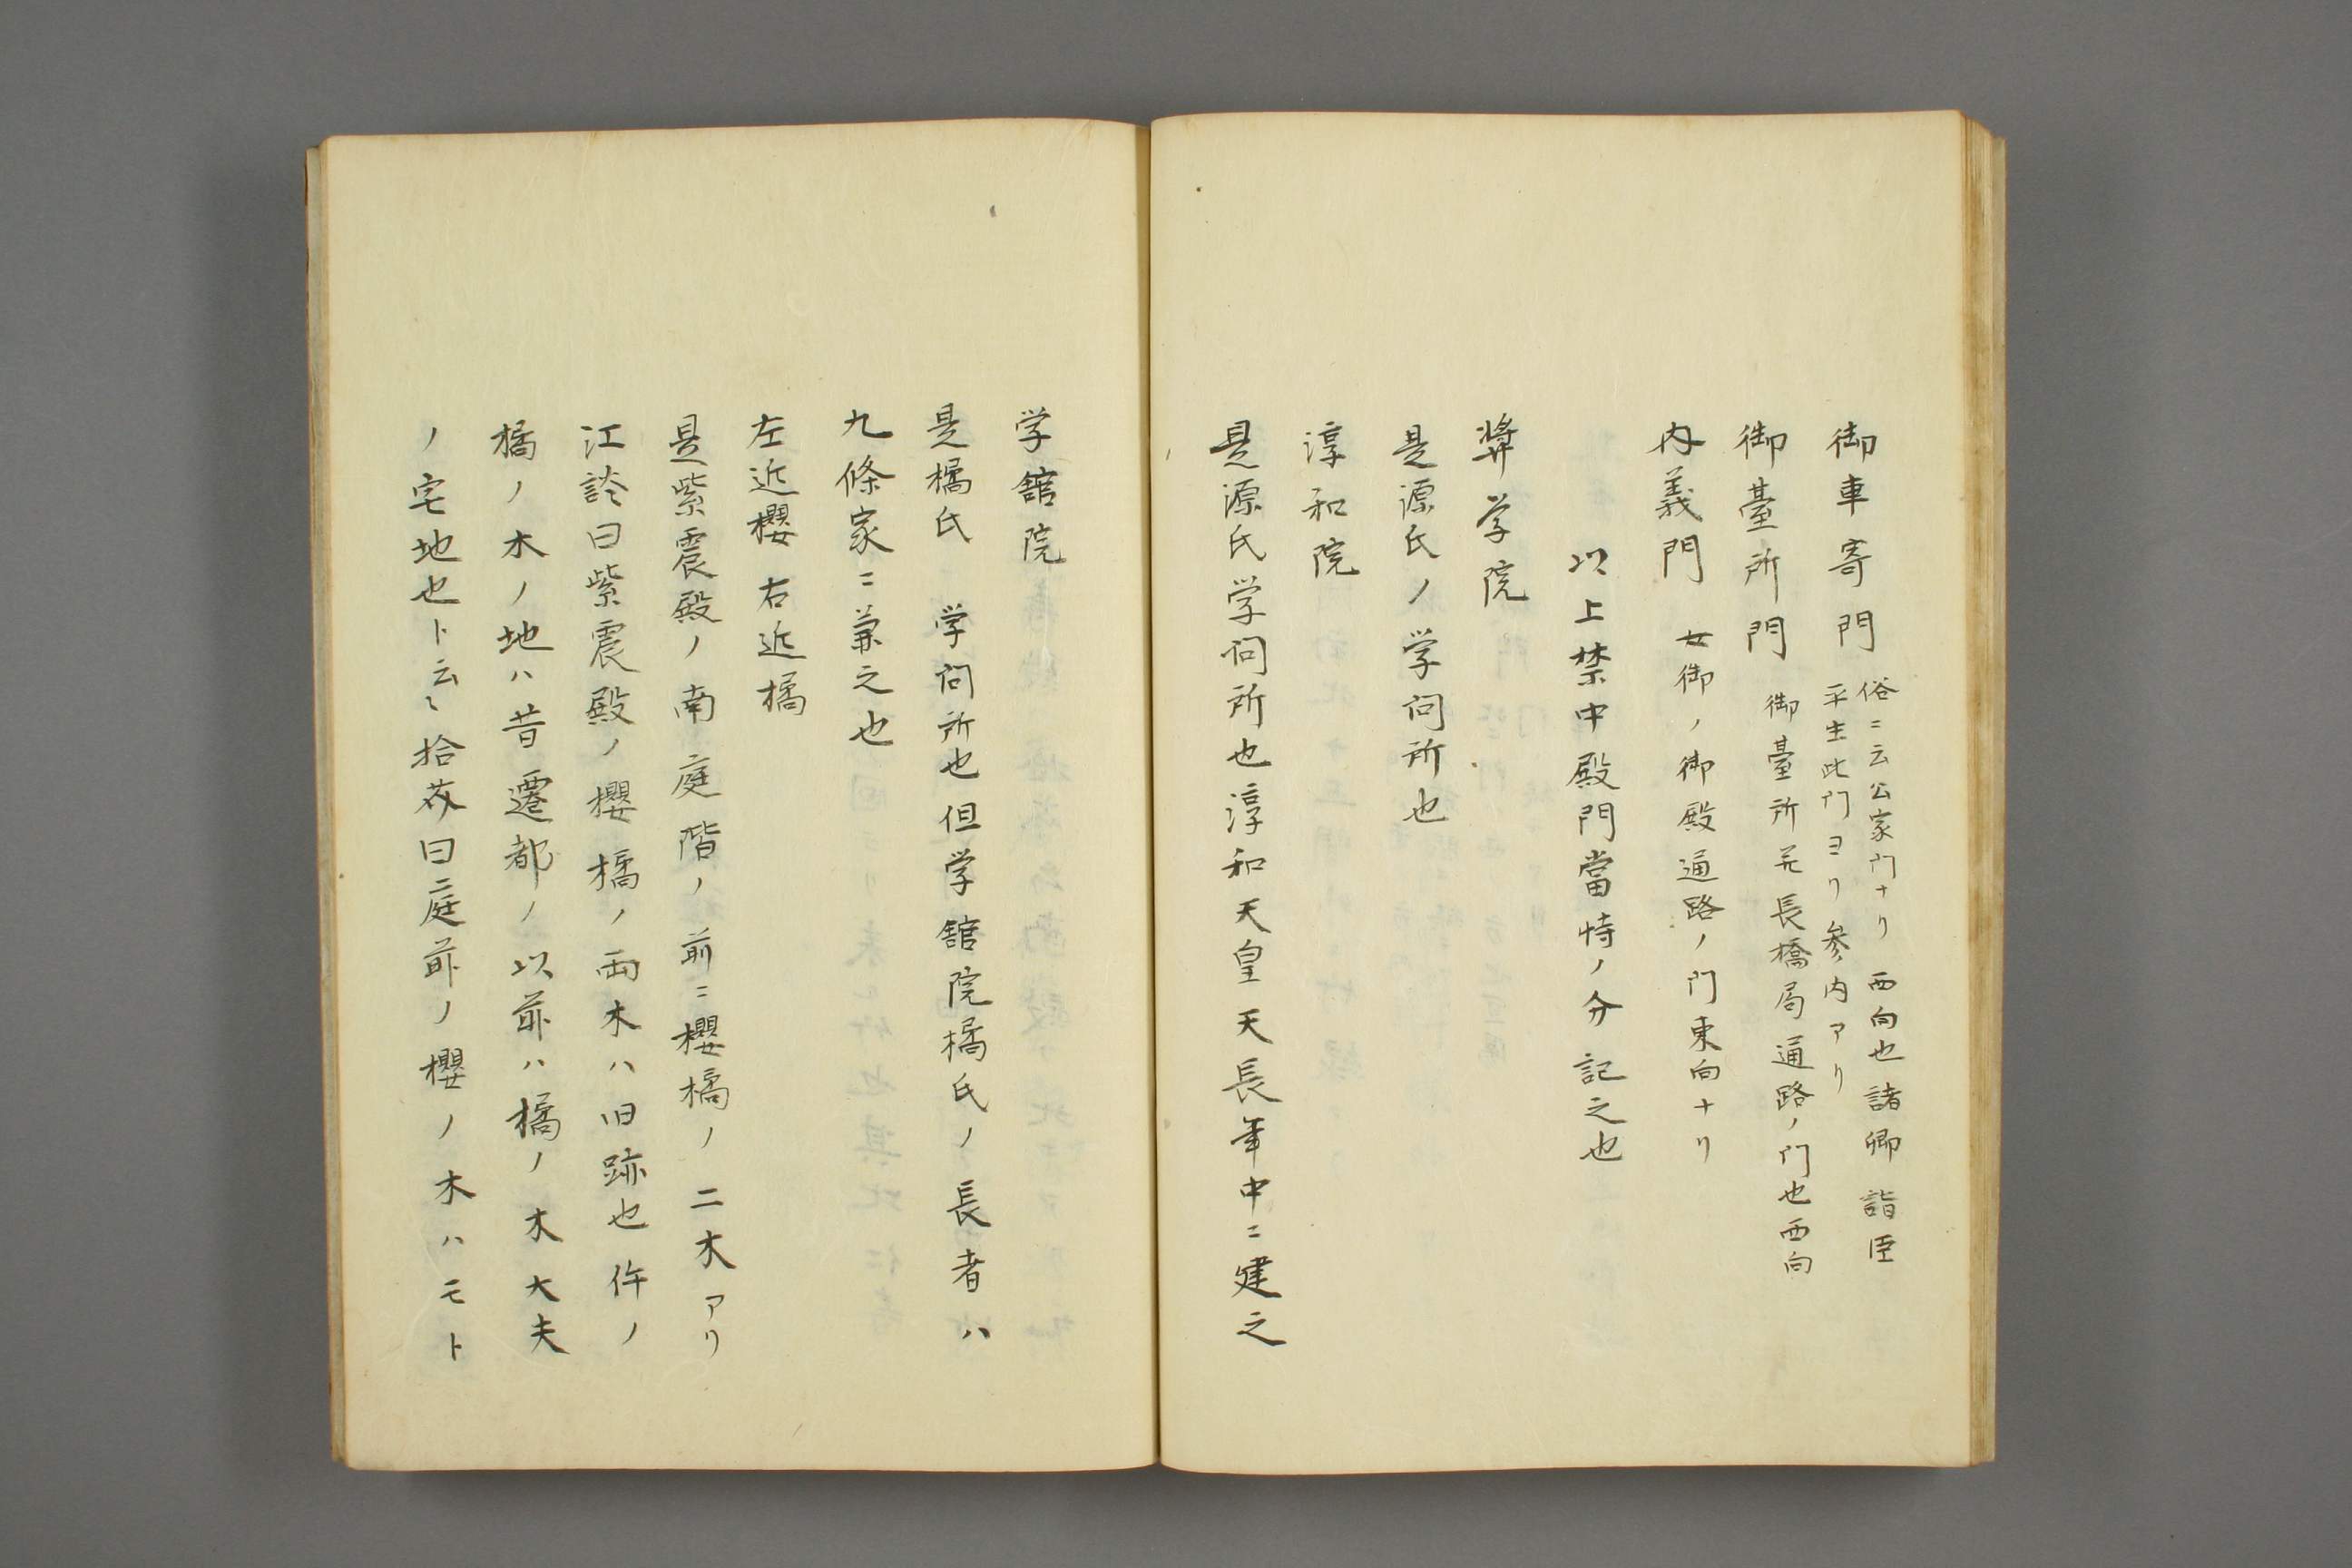 御車寄門
俗ニ云公家門ナリ西向也諸卿諸臣
平生此門ヨリ参内アリ
御臺所門 御臺所并長橋局通路ノ門也西向
内義門 女御ノ御殿通路ノ門東向ナリ
以上禁中殿門當時ノ分記之也
奨学院
是源氏ノ学问所也
淳和院
是源氏学问所也淳和天皇天長年中ニ建之
学舘院
是橘氏 学问所也但学舘院橘氏ノ長者ハ
九條家ニ兼之也
左近櫻 右近橘
是紫震殿ノ南庭階ノ前ニ櫻橘ノ二木アリ
江談曰紫震殿ノ櫻橘ノ両木ハ旧跡也件ノ
橘ノ木ノ地ハ昔遷都ノ以前ハ橘ノ木大夫
ノ宅地也ト云〻拾芥曰庭前ノ櫻ノ木ハモト